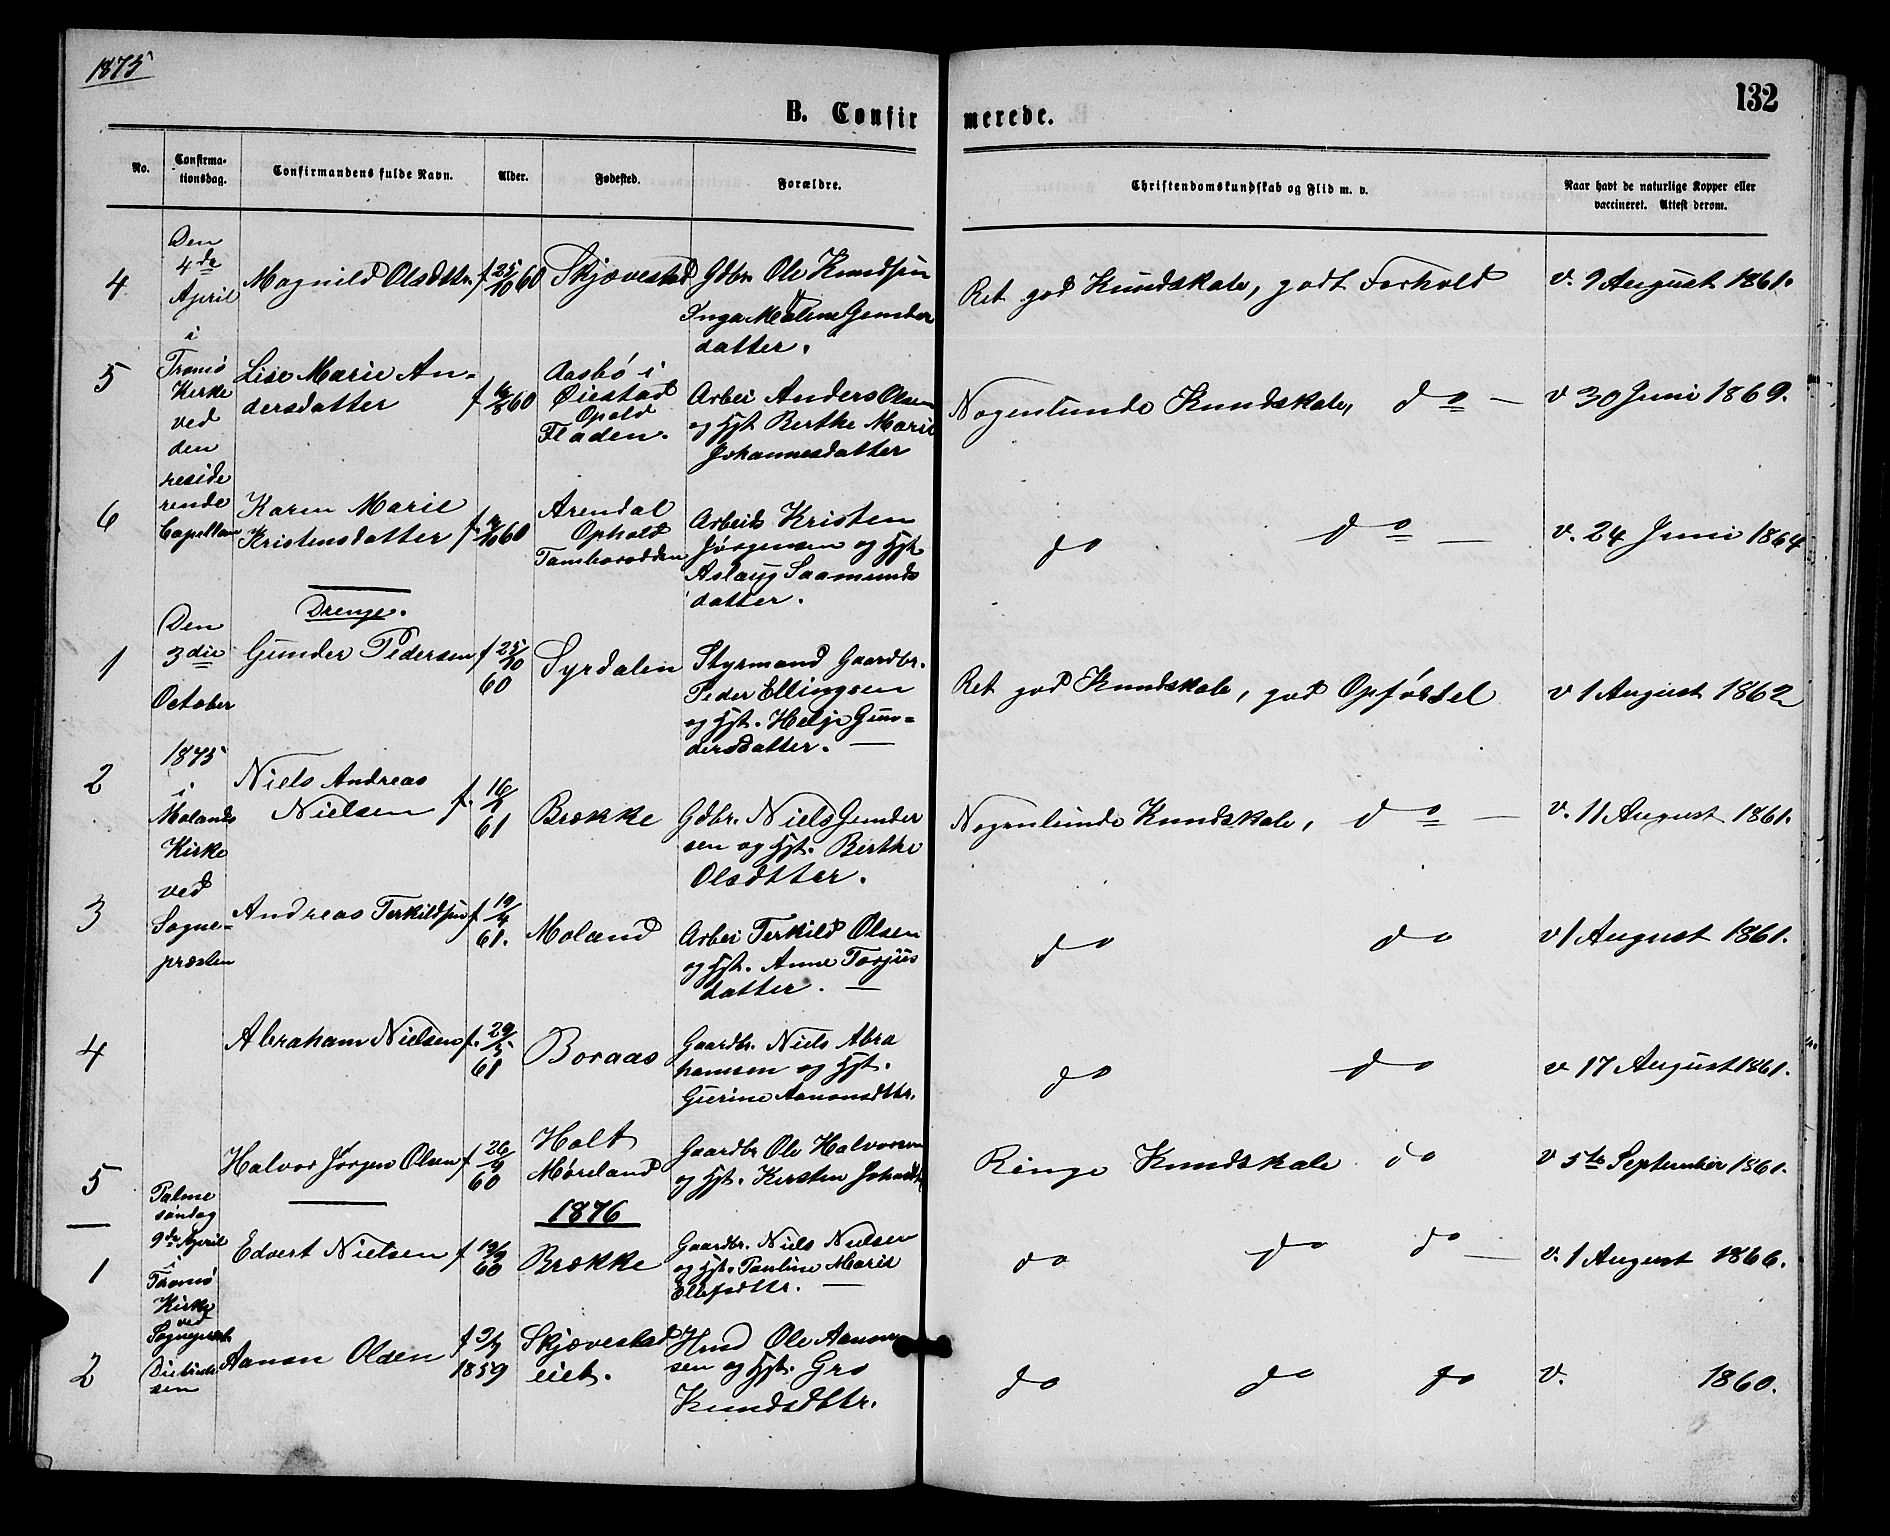 1875
132
B. Confirmerede.
No. Confirmationsdag. Confirmandens fulde Navn. Alder. Fødested. Forældre. Christendomskundskab og Flid m. v. Naar havt de naturlige Kopper eller vaccineret. Attest derom.
Den
4de
April
i
Tromø
Kirke
ved
den
reside
rende
Capellan
4 Magnild Olsdttr. f 25/10 60 Skjævestad Gdbr. Ole Knudsen
Inga Malene Gunder
datter.
Ret god Kundskab, godt Forhold v. 9 August 1861.
5 Lise Marie An-
dersdatter f 60
Aasbø i
Øiestad
Opold
Fladen.
Arbei Anders Olsen
og Hst Berthe Marie
Johannesdatter
Nogenlunde Kundskab, do — v 30 Juni 1869.
6 Karen Marie
Kristensdatter f. 60
Arendal
Ophold
Tamborodden
Arbeids Kristen
Jørgensen og Hst
Aslaug Saamunds
datter.
do do — v. 24 Juni 1864
Drenge.
Den
3die
October
1875
i
Molands
Kirke
ved
Sogne-
præsten
1 Gunder Pedersen f 25/10
60
Syrdalen
Styrmand Gaardbr.
Peder Ellingsen
og Hst. Helje Gun-
dersdatter. —
Ret god Kundskab, god Opførsel v 1 August 1862
2 Niels Andreas
Nielsen f. 16/1
61
Brække
Gdbr. Niels Gunder
sen og Hst. Berthe
Olsdtter.
Nogenlunde Kundskab, do — v. 11 August 1861.
3 Andreas Terkildsen f 19/4
61.
Moland
Arbei Terkild Olsen
og Hst. Anne Torjus
datter. —
do do v 1 August 1861.
4 Abraham Nielsen f. 29/5
61
Boraas
Gaardbr. Niels Abra
hamsen og Hst.
Gurine Aanonsdttr.
do do v 17 August 1861.
5 Halvor Jørgen Olsen f 26/4
60
Holt
Møreland
Gaardbr Ole Halvorsen
og Hst. Kirsten
Ringe Kundskab do v 5te September 1861.
1876
Palme
søndag
9de April
i
Tromø
Kirke
ved
Sognepræst
sen
1 Edvert Nielsen f 19/9
60
Brække
Gaardbr. Niels Nielsen
og Hst. Pauline Marie
Ellefsdttr. —
do do do — v. 1 August 1866.
2 Aanon Olsen f
1859
Skjævestad
eiet.
Hmd Ole Aanon
sen og Hst. Gro
Knudsdttr.
do do do v. 1860.